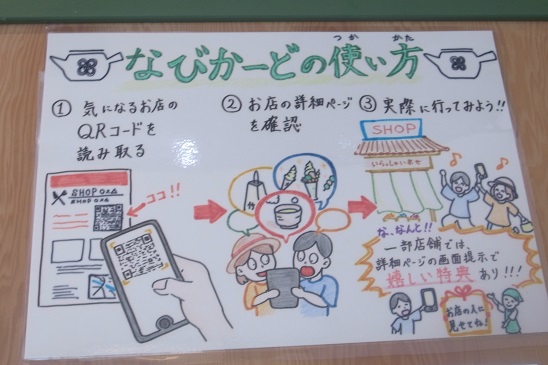 なびかーどの使い方
つか かた
① 気になるお店の
QRコードを
読み取る
② お店の詳細ページ
を確認
③ 実際に行ってみよう!!
SHOP
いらっしゃいませ
SHOP
SHOP
ココ!!
竹
な、なんと!!
一部店舗では、
詳細ページの画面提示で
嬉しい特典あり!!!
お店の人に
見せてね!